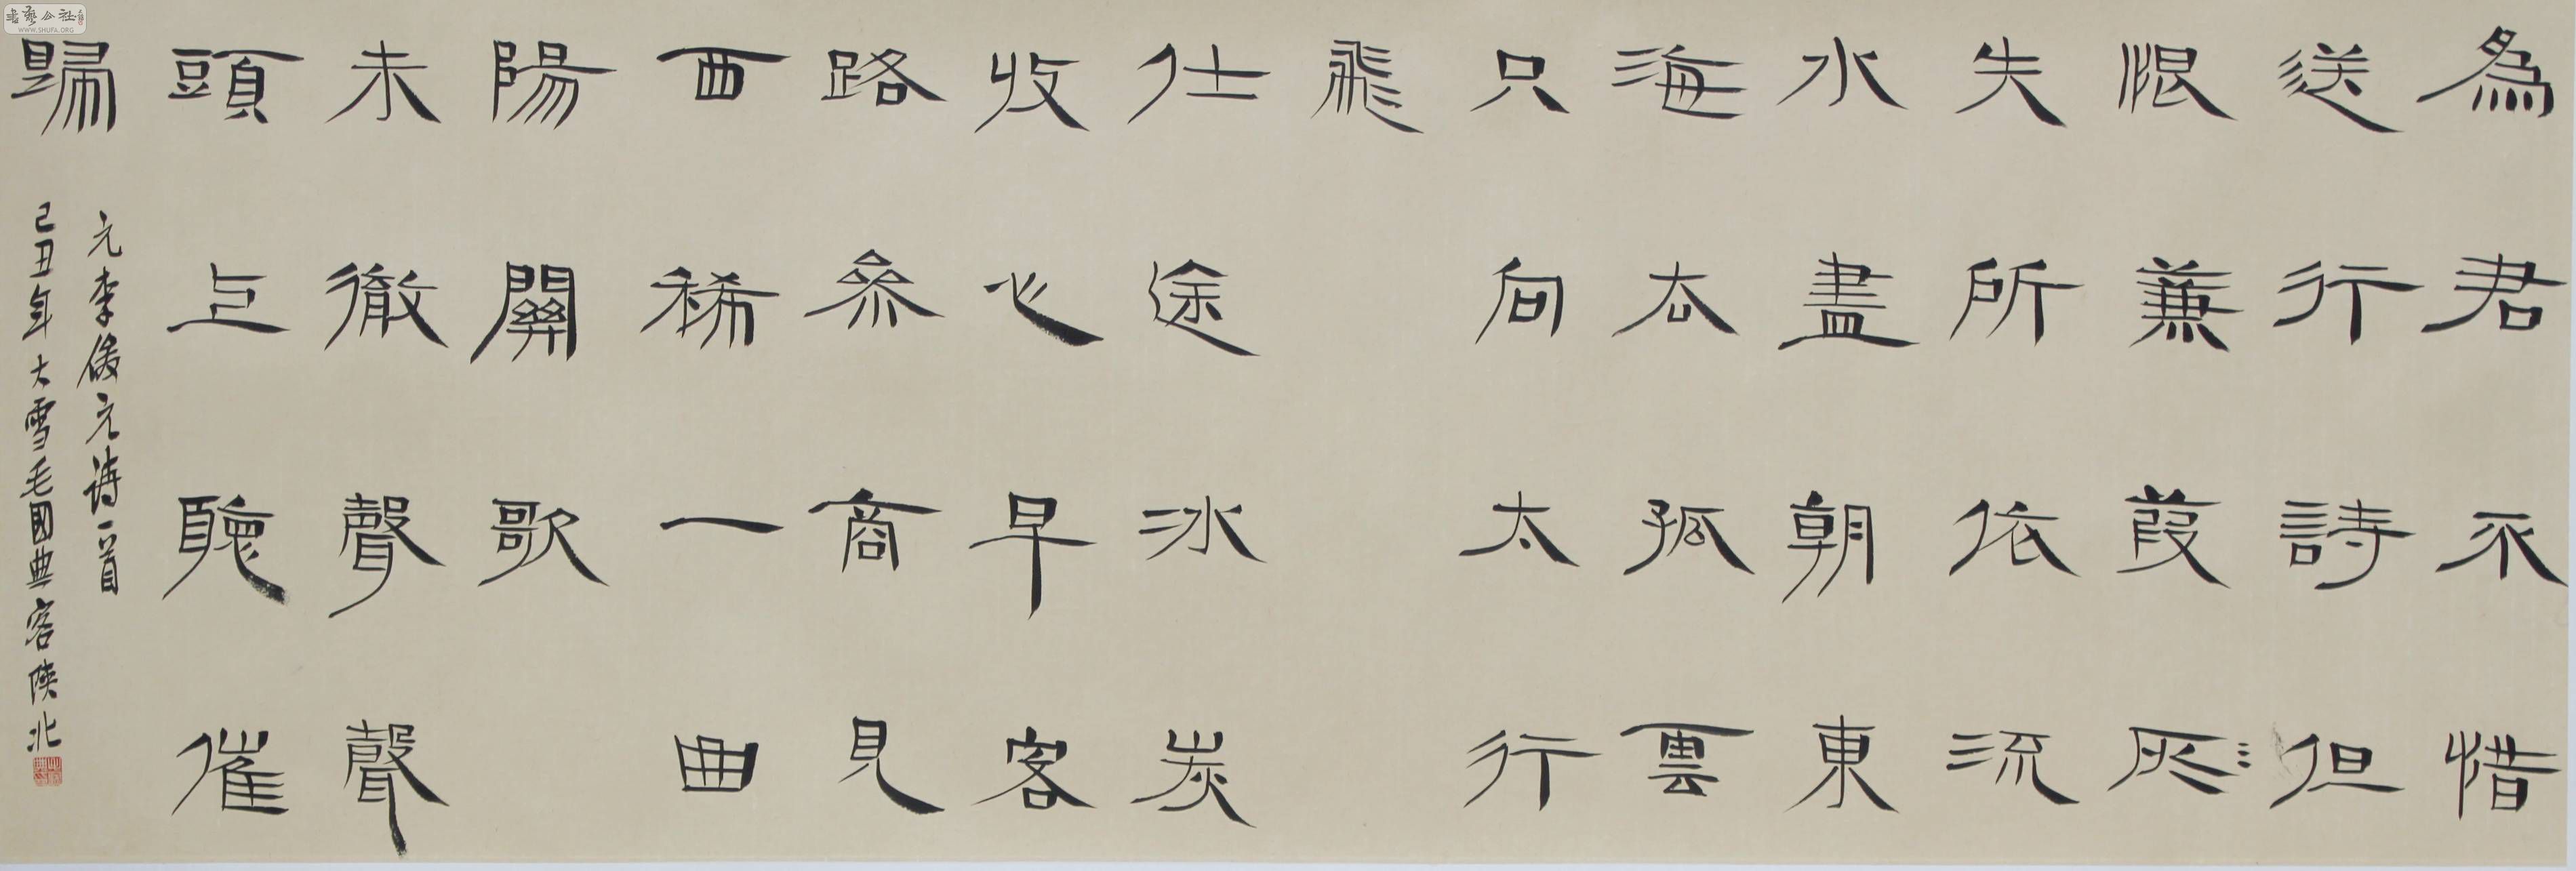 為君不惜
送行詩但
恨蒹葭灰
失所依流
水盡朝東
海去孤雲
只向太行
飛
仕途冰炭
收心早客
路參商見
面稀一曲
陽關歌
未徹聲聲
頭上聽催
歸
元李俊元詩一首
己丑年大雪毛國典客陝北
書藝公社
WWW.SHUFA.ORG